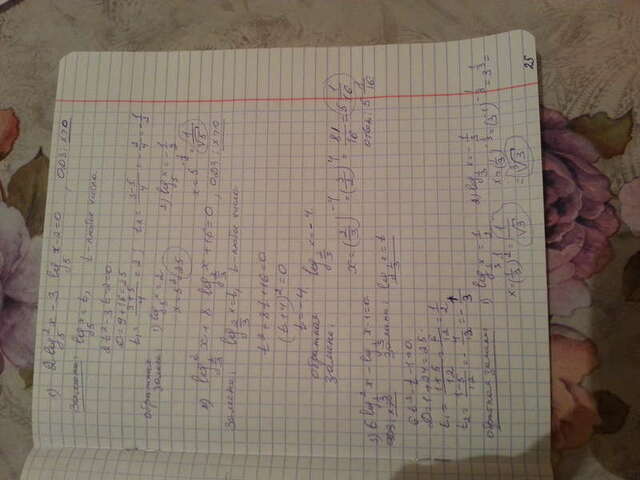 1) 2 log₅² x - 3 log₅ x - 2 = 0 ОДЗ: x>0
Замена: log₅ x = t, t - любое число
2t² - 3t - 2 = 0
D = 9 + 16 = 25
t₁ = (3+5)/4 = 2; t₂ = (3-5)/4 = -2/4 = -1/2
обратная замена
1) log₅ x = 2
x = 5² = 25
2) log₅ x = -1/2
x = 5^(-1/2) = 1/√5
log²
x + 8 log
x + 16 = 0, ОДЗ: x>0
Замена: log
x = t, t - любое число
t² + 8t + 16 = 0
(t+4)² = 0
t = -4
обратная замена:
log
x = -4
= 81/16 = 5 1/16
ответ: 5 1/16
3) 6 log²
x - log
x - 1 = 0
ОДЗ: x>0
замена: log
x = t
6t² - t - 1 = 0
D = 1 + 24 = 25
t₁ = (1+5)/12 = 6/12 = 1/2
t₂ = (1-5)/12 = -4/12 = -1/3
обратная замена:
1) log
x = 1/2
2) log
x = -1/3
25